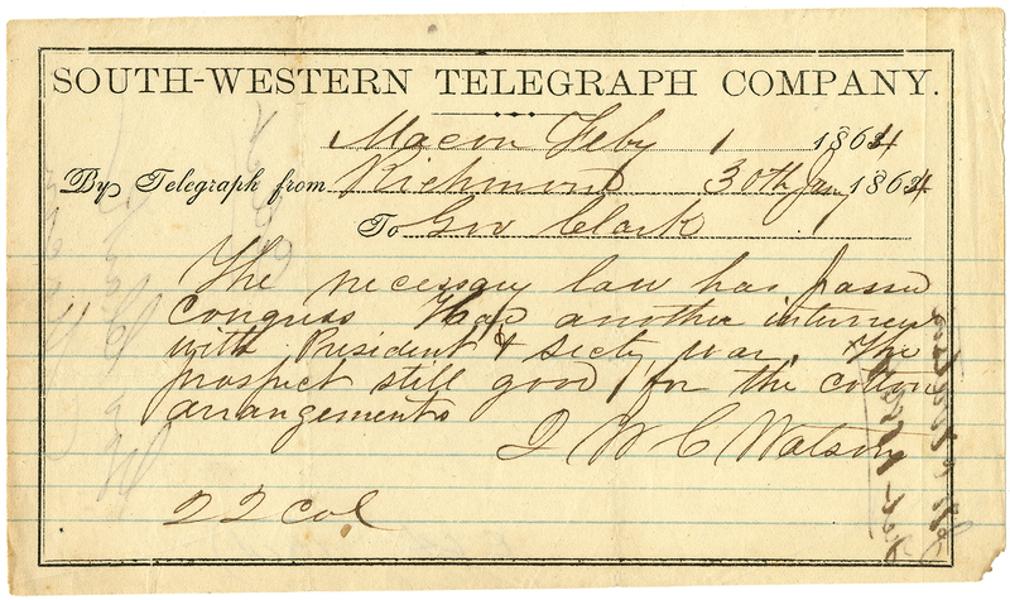 SOUTH-WESTERN TELEGRAPH COMPANY.
Macon Feby 1 1864
By Telegraph from Richmond 30th Jany 1864
To Gov Clark
The necessary law has passed
Congress Had another interview
with President & secty war, The
prospect still good for the cotton
arrangements
J W C Watson
22 col